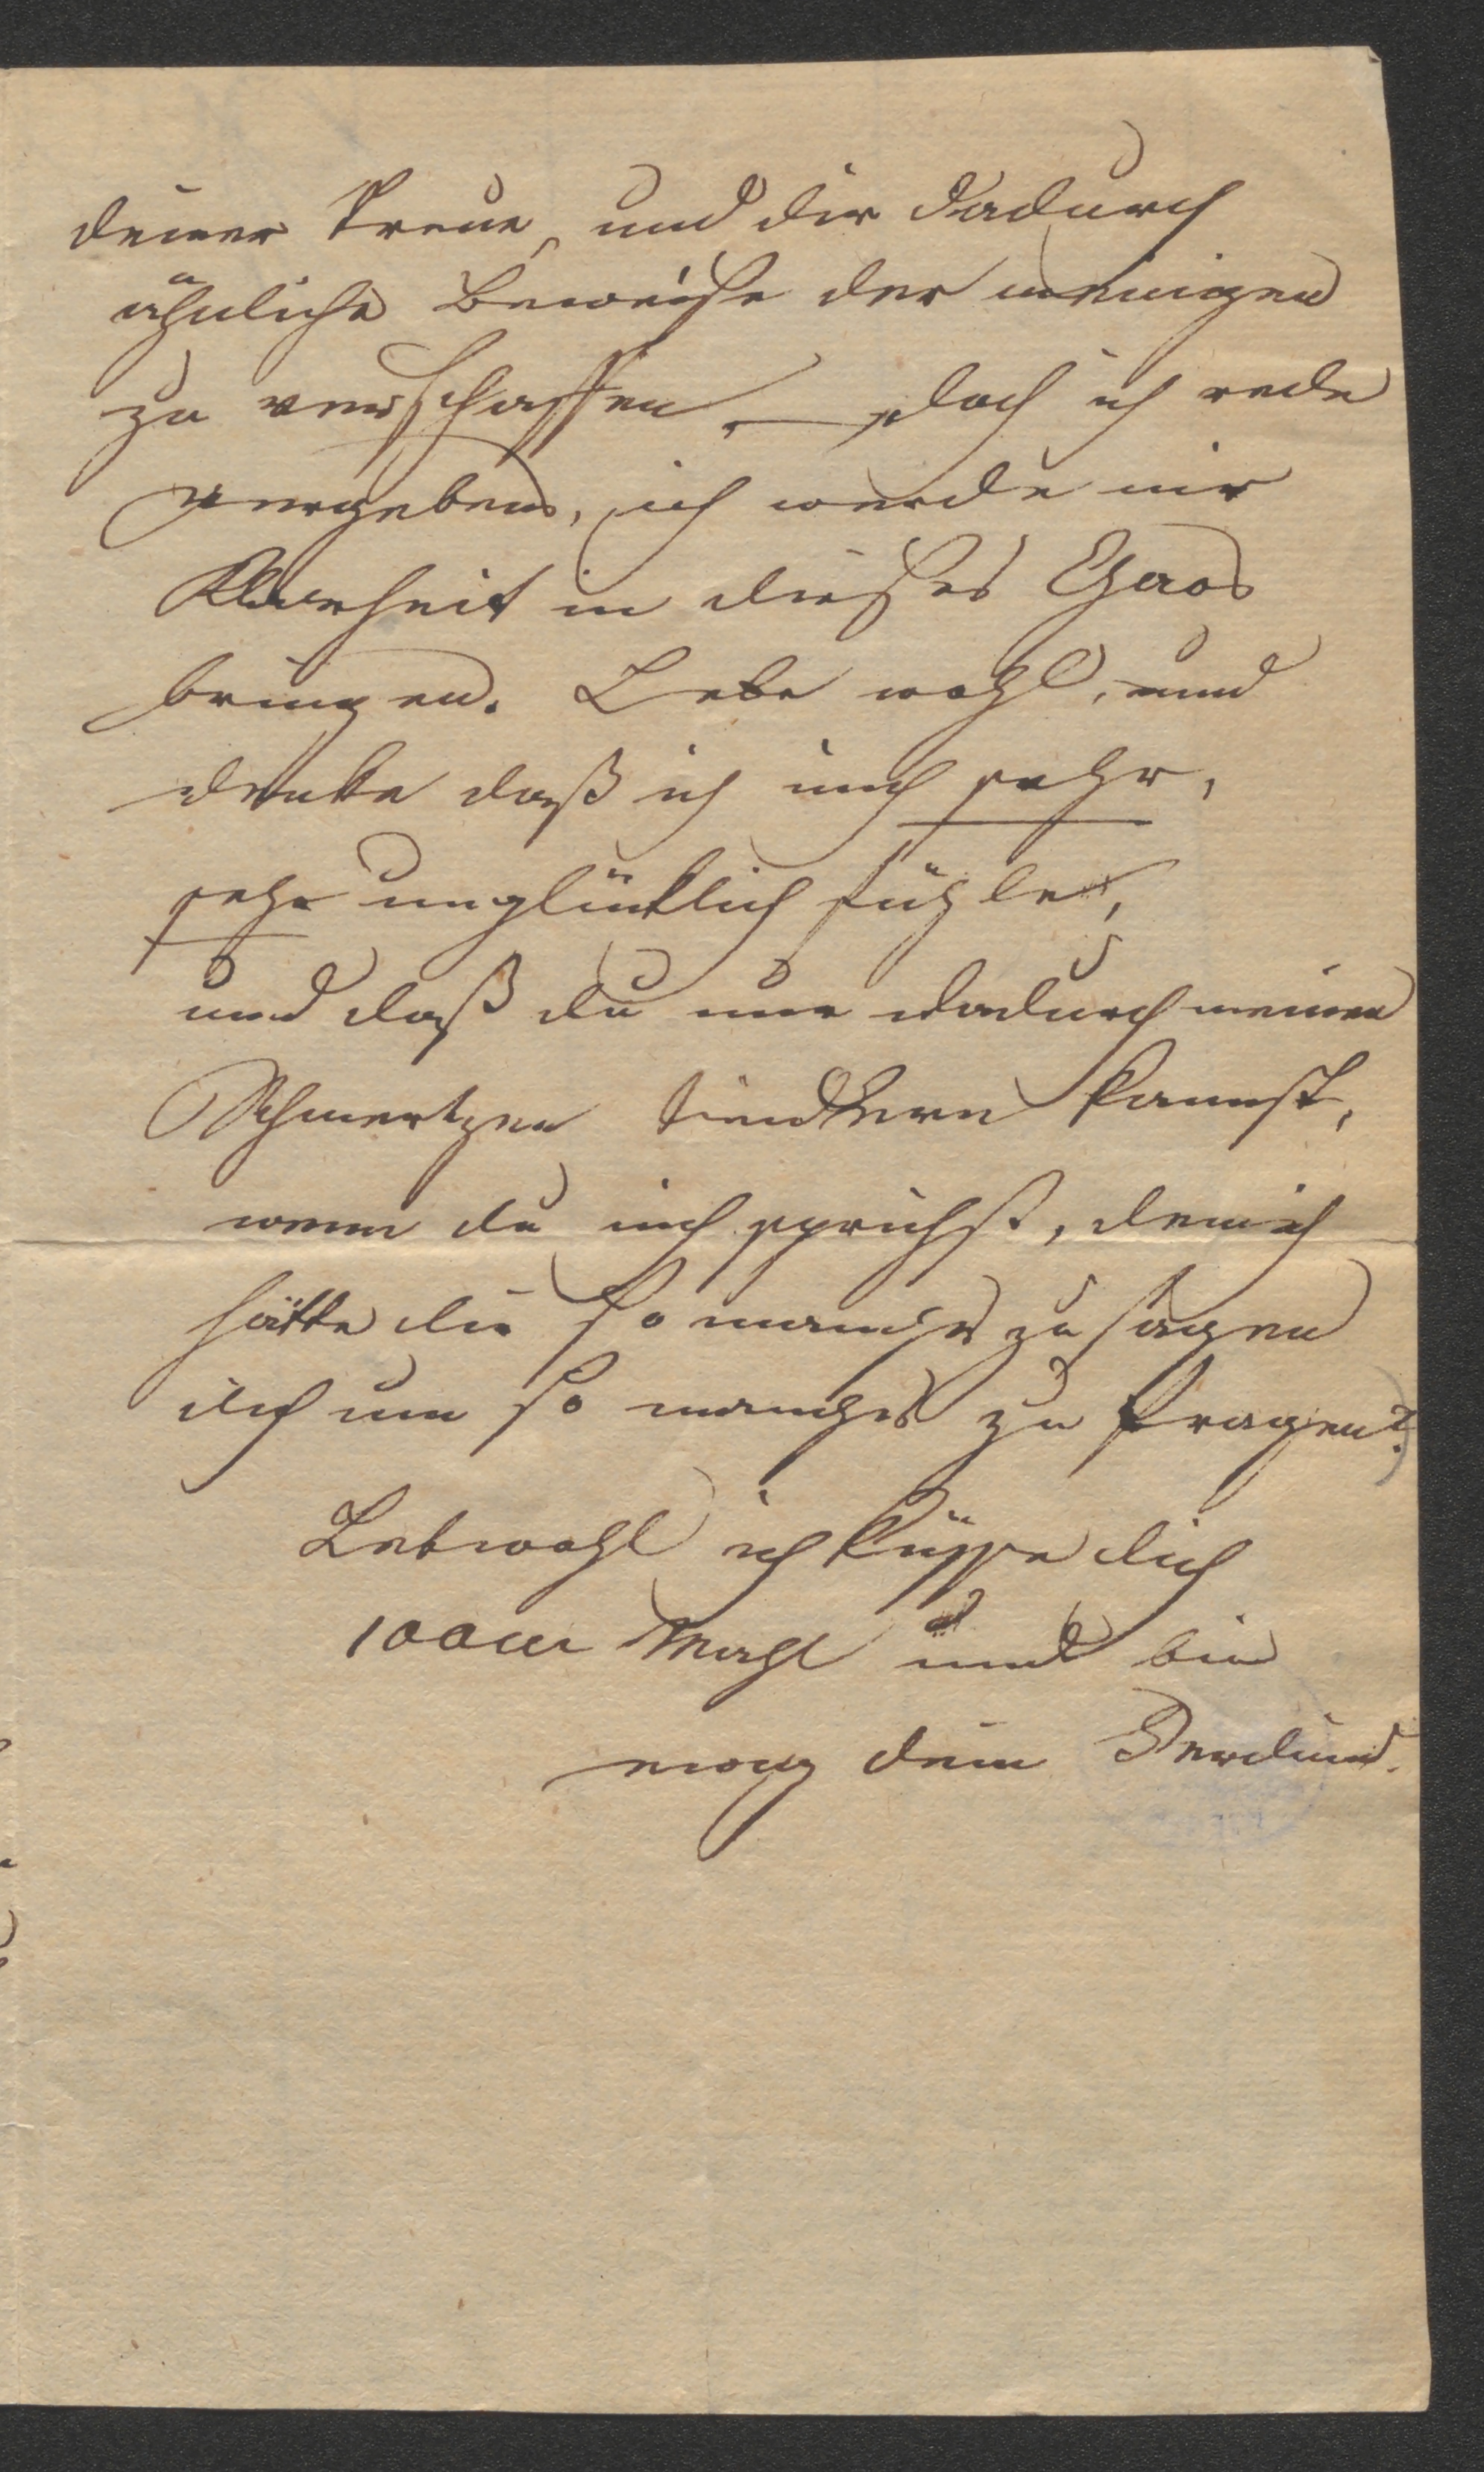 deiner Treue, und dir dadurch
ähnliche Beweise der meinigen
zu verschaffen, – doch ich rede
vergebens, ich werde nie
Klarheit in dieses Chaos
bringen. Lebe wohl, und
denke daß ich mich sehr,
sehr unglücklich fühle,
und daß du nur dadurch meinen
Schmertzen lindern kannst,
wenn du mich sprichst, den ich
hätte dir so manches zu sagen
dich um so manches zu fragen?
Lebwohl ich küsse dich
Mahl und bin
ewig dein Ferdinand.